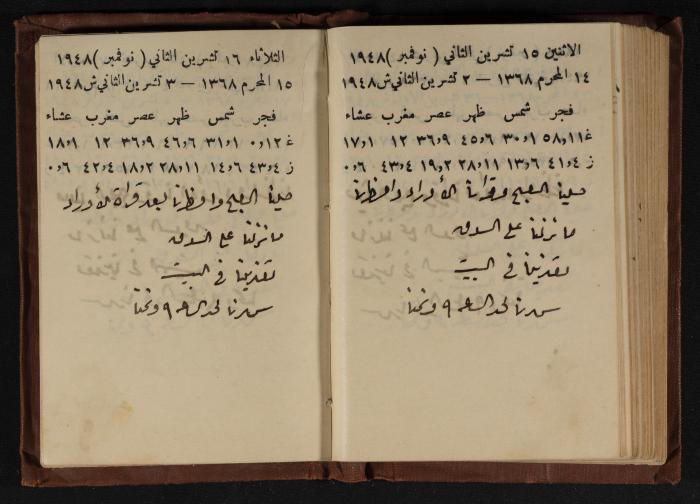 الاثنين ١٥ تشرين الثاني ( نوفمبر ) ١٩٤٨
١٤ المحرم ١٣٦٨ — ٢ تشرين الثاني ش ١٩٤٨
فجر شمس ظهر عصر مغرب عشاء
غ ١١٫٥٨ ١٫٣٠ ٦٫٤٥ ٩٫٣٦ ١٢ ١٫١٧
ز ٤٫٤١ ٦٫١٣ ١١٫٢٨ ٢٫١٩ ٤٫٤٣ ٦٫٠
صلينا الصبح وقرأنا الأوراد وافطرنا
ما نزلنا على السوق
تغذينا في البيت
سهرنا لحد الساعه ٩ ونمنا
الثلاثاء ١٦ تشرين الثاني ( نوفمبر ) ١٩٤٨
١٥ المحرم ١٣٦٨ — ٣ تشرين الثاني ش ١٩٤٨
فجر شمس ظهر عصر مغرب عشاء
غ ١٢٫٠ ١٫٣١ ٦٫٤٦ ٩٫٣٦ ١٢ ١٫١٨
ز ٤٫٤٣ ٦٫١٤ ١١٫٢٨ ٢٫١٨ ٤٫٤٢ ٦٫٠
صلينا الصبح وافطرنا بعد قراة الأوراد
ما نزلنا على السوق
تغذينا في البيت
سهرنا لحد الساعه ٩ ونمنا